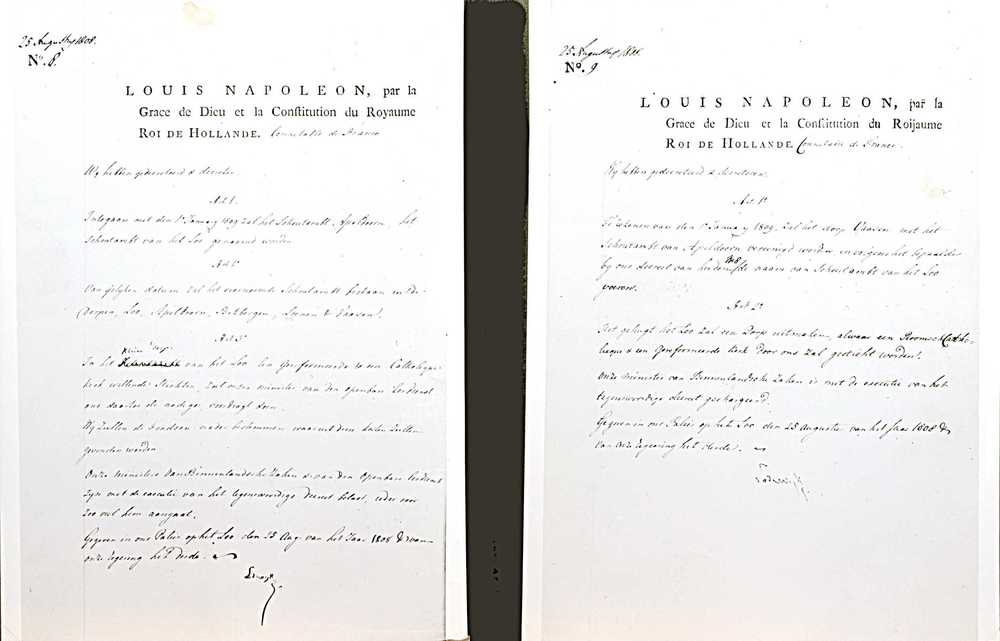 25 Augustus 1808.
No. 8.
LOUIS NAPOLEON, par la
Grace de Dieu et la Constitution du Royaume
ROI DE HOLLANDE, Connétable de France
Wij hebben gedecreteerd & decreten
Art. 1.
Integaan met den 1e January 1809 zal het Schoutambt Apeldoorn het
Schoutambt van het Loo genoemd worden
Art. 2e
Van gelyken datum zal het voornoemde Schoutambt bestaan uit de
dorpen, Loo, Apeldoorn, Beekbergen, Loenen & Vaasen.
Art. 3e
Klein dorp
In het van het Loo een Gereformeerde en een Catholyke
kerk willende Stichten, zal onze minister van den openbare Eerdienst
ons daartoe de nodige voordragt doen.
Wij zullen de fondsen nader bestemmen waaruit deze kosten zullen
gevonden worden
Onze Ministers van Binnenlandsche Zaken & van den openbare Eerdienst
zyn met de executie van het tegenwoordige Decreet belast, ieder voor
zoo veel hem aangaat.
Gegeven in ons Paleis op het Loo den 25 Aug. van het Jaar 1808 & van
onze regering het derde.
25 Augustus 1808.
No. 9
LOUIS NAPOLEON, par la
Grace de Dieu et la Constitution du Roijaume
ROI DE HOLLANDE, Connétable de France.
Wij hebben gedecreteerd & decreteren.
Art. 1e
Te rekenen van den 1e January 1809. zal het dorp Vaasen met het
Schoutambt van Apeldoorn vereenigd worden, en volgens het bepaalde
by ons decreet van heden No. 8 de naam van Schoutambt van het Loo
voeren.
Art. 2e
Het gehugt het Loo zal een Dorp uitmaken, alwaar een Roomsch Catho-
lieque & een Gereformeerde Kerk door ons zal gesticht worden.
Onze Minister van Binnenlandsche Zaken is met de executie van het
tegenwoordige decreet gechargeerd.
Gegeven in ons Paleis op het Loo den 25 Augustus van het Jaar 1808 &
van onze regering het derde.